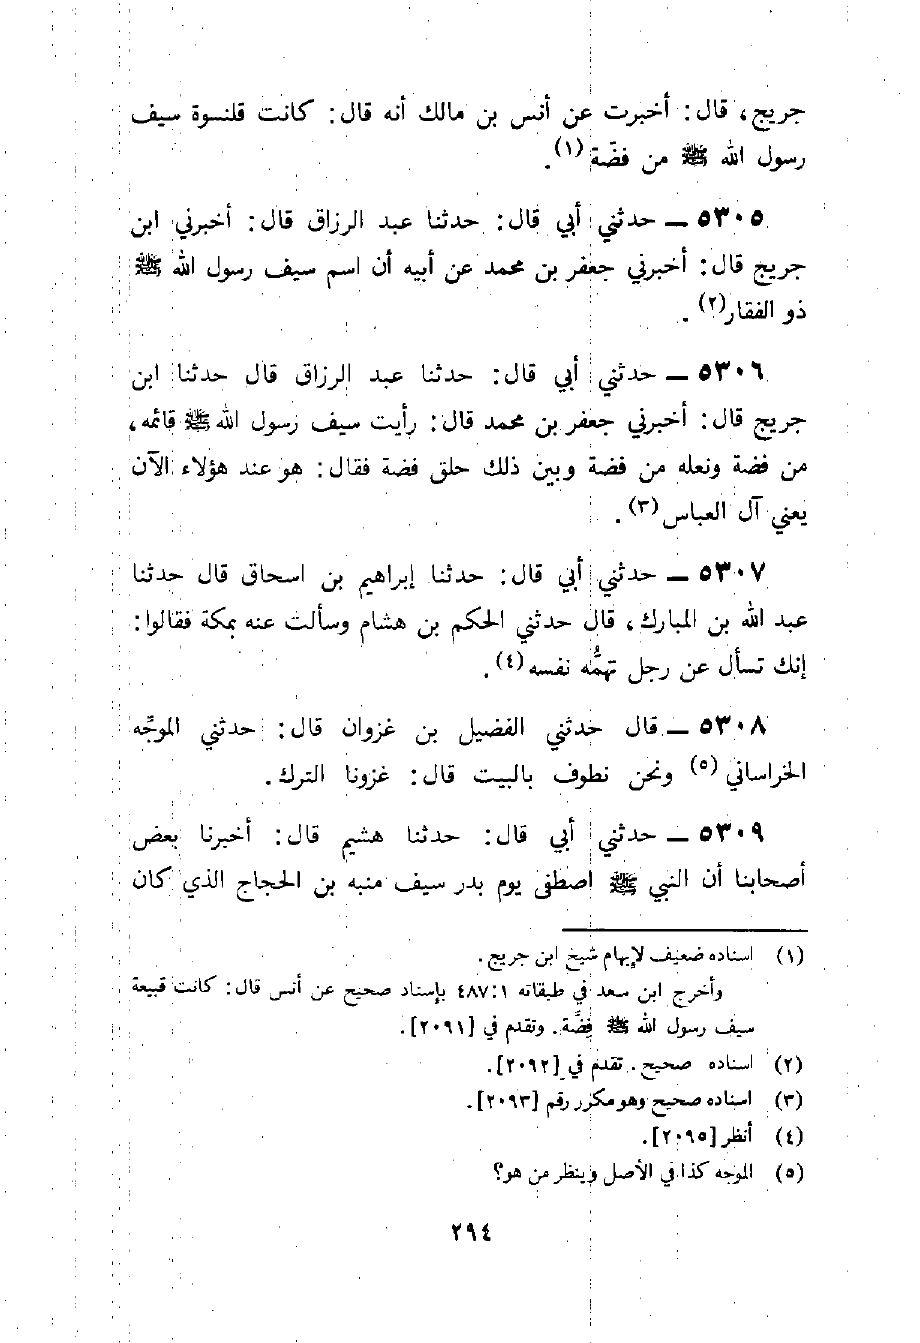 جريج، قال: أخبرت عن أنس بن مالك أنه قال: كانت قلنسوة سيف
رسول الله ﷺ من فضّة(١).
٥٣٠٥ ــ حدثني أبي قال: حدثنا عبد الرزاق قال: أخبرني ابن
جريج قال: أخبرني جعفر بن محمد عن أبيه أن اسم سيف رسول الله ﷺ
ذو الفقار(٢).
٥٣٠٦ ــ حدثني أبي قال: حدثنا عبد الرزاق قال حدثنا ابن
جريج قال: أخبرني جعفر بن محمد قال: رأيت سيف رسول الله ﷺ قائمه،
من فضة ونعله من فضة وبين ذلك حلق فضة فقال: هو عند هؤلاء الآن
يعني آل العباس(٣).
٥٣٠٧ ــ حدثني أبي قال: حدثنا إبراهيم بن اسحاق قال حدثنا
عبد الله بن المبارك، قال حدثني الحكم بن هشام وسألت عنه بمكة فقالوا:
إنك تسأل عن رجل تهمُّه نفسه(٤).
٥٣٠٨ ــ قال حدثني الفضيل بن غزوان قال: حدثني الموجِّه
الخراساني(٥) ونحن نطوف بالبيت قال: غزونا الترك.
٥٣٠٩ ــ حدثني أبي قال: حدثنا هشيم قال: أخبرنا بعض
أصحابنا أن النبي ﷺ اصطفى يوم بدر سيف منبه بن الحجاج الذي كان
(١) اسناده ضعيف لإبهام شيخ ابن جريج.
وأخرج ابن سعد في طبقاته ٤٨٧:١ بإسناد صحيح عن أنس قال: كانت قبيعة
سيف رسول الله ﷺ فِضَّة. وتقدم في [٢٠٩١].
(٢) اسناده صحيح. تقدم في [٢٠٩٢].
(٣) اسناده صحيح وهو مكرر رقم [٢٠٩٣].
(٤) أنظر [٢٠٩٥].
(٥) الموجه كذا في الأصل وينظر من هو؟
٢٩٤